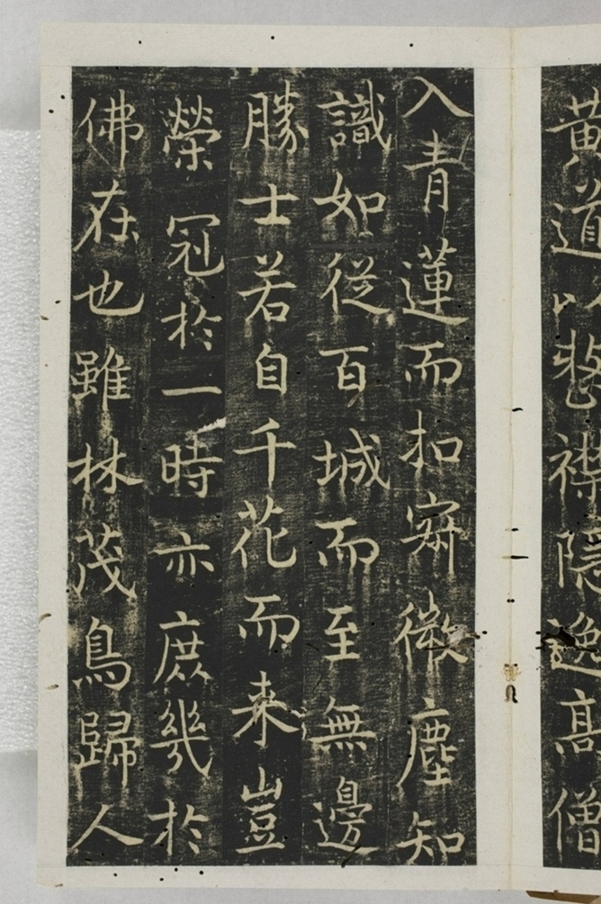 黃道以隱逸高僧
入青蓮而扣寂微塵知
識如從百城而至無邊
勝士若自千花而来豈
榮冠於一時亦庶幾於
佛在也雖林茂鳥歸人